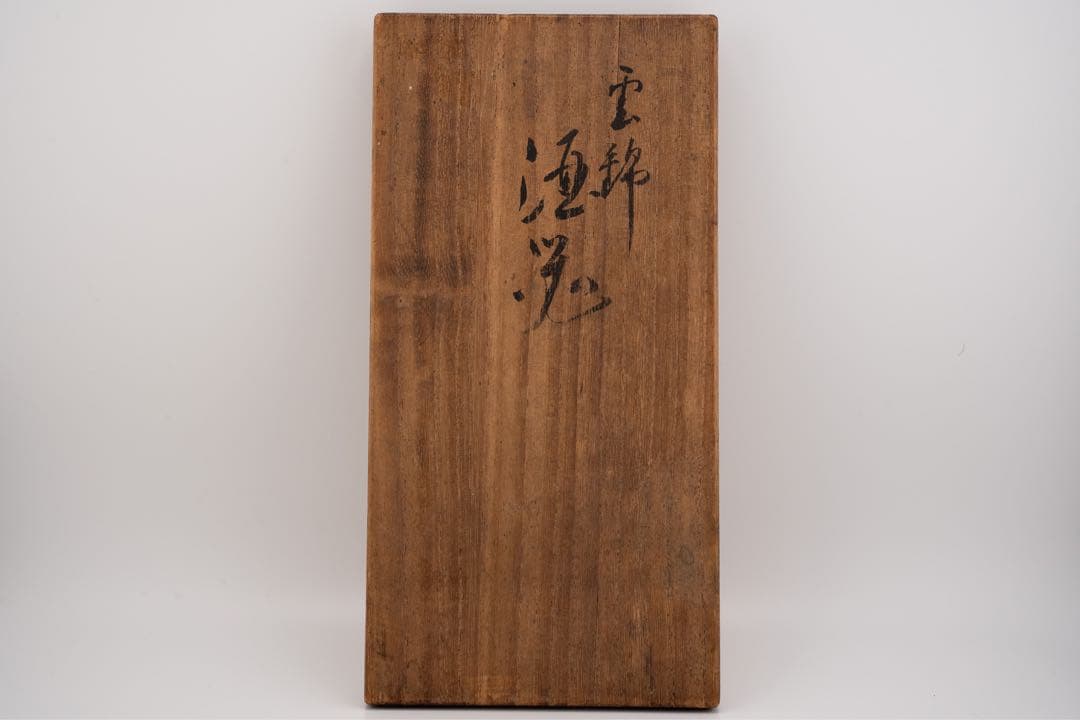 雲錦
酒器